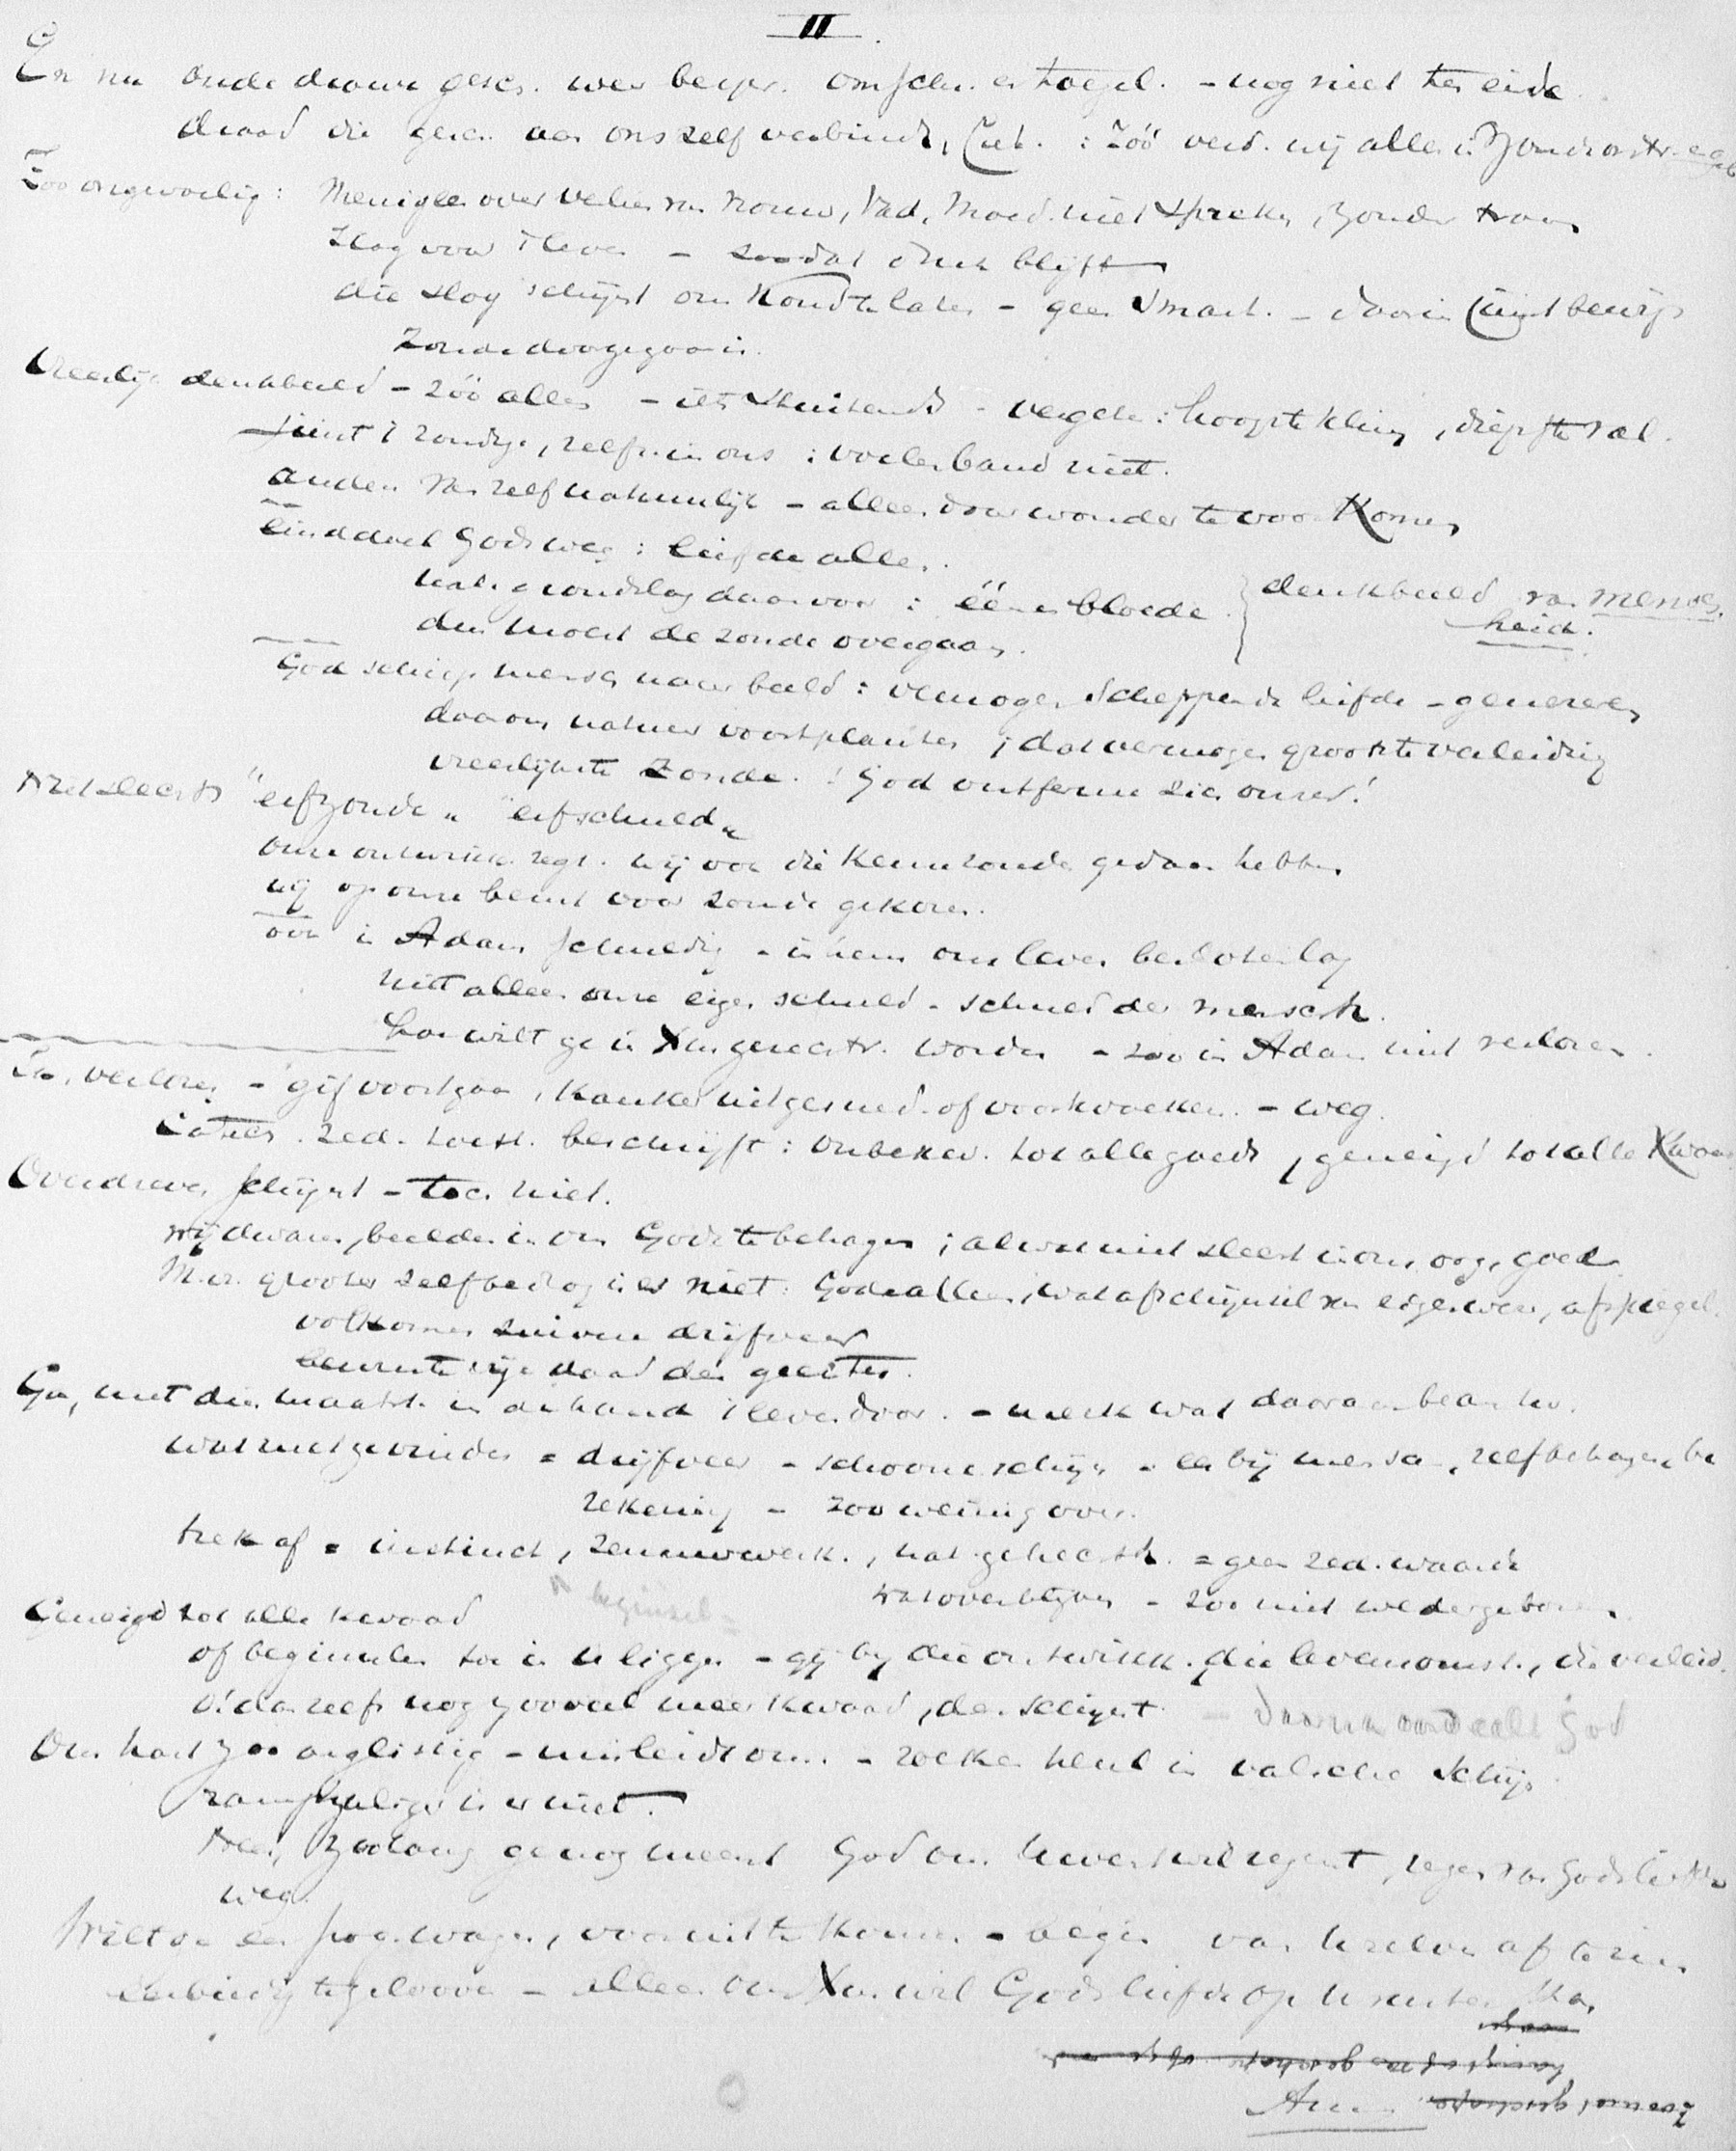 II.
En nu oude droeve gesch. weer bespr. omschr. en toegel. - nog niet ten einde.
draad die gesch. aan ons zelf verbindt, Cat. : zóó verd. wij allen in
Zoo ongevoelig : Menigeen over verlies van vrouw, Vad, Moed. niet spreken, zonder traan
slag voor 't leven - zoodat druk blijft
die slag schijnt ons koud te laten - geen smart. - daarin juist bewijs
Zonde doorgegaan is.
Vreeslijk denkbeeld - zóó allen - iets stuitends - vergel. : hoogste kling, diepste dal.
juist 't zondige, zelfs in ons : voelen band niet.
anders van zelf natuurlijk - alleen door wonder te voorkomen
einddoel Gods weg : liefde allen.
nat. grondslag daarvoor : éénen bloede } denkbeeld van mensch
heid.
dus moest de zonde overgaan.
God schiep mensch naar beeld : vermogen scheppende liefde - genereren
daarom natuur voortplanten ; dat vermogen grootste verleiding
vreeslijkste zonde. ! God ontferme zich onzer!
Niet slechts "erfzonde" "erfschuld"
onze ontwikk. zegt. wij ook die kennzonde gedaan hebben
wij op onze beurt voor zonde gekozen.
ook in Adam schuldig - in hem ons leven besloten lag
niet alleen onze eigen schuld - schuld der mensch.
hoe wilt ge in Xus gerechtv. worden - zoo in Adam niet verloren.
Ja, verloren - gif voortgaan, kanker uitgesned. of voortwoekeren. - weg.
Catech. zed. toest. beschrijft : onbekw. tot alle goeds, geneigd tot alle kwaad
Overdreven schijnt - toch niet.
wij dwazen, beelden in ons Gode te behagen ; al wat niet slecht in ons oog, goed
M. a. grooter zelfbedrog is er niet : Gode alleen, wat afschijnsel van eigen wezen, afspiegel.
volkomen zuivere drijfveer
bewuste vrije daad des geestes.
Ga, met dien maatst. in de hand 't leven door. - merk wat daaraan beantw.
wat niet gevonden = drijfveer - schoone schijn - eer bij mensch, zelfbehagen, be
rekening - zoo weinig over.
trek af = instinct, zenuwwerk., nat. gehechth. = geen zed. waarde
beginsel
wat overblijven - zoo niet wedergeboren.
Geneigd tot alle kwaad
of beginselen toe in u liggen - gij bij die ontwikk. die levensomst., die verleid.
o! daar reeds nog zooveel meer kwaad, dan schijnt. - daarna oordeelt God
Ons hart zoo arglistig - misleidt ons. - zoeken heul in valsche schijn
rampzaliger is er niet.
Neen, zoolang ge nog meent God om uwent wil zegent, tegen van Gods liefde
weg.
Wilt ge een proef wagen, vooruit te komen - begin van u zelven af te zien
eenvoudig te gelooven - alleen om Xus wil Gods liefde op u rusten kan
Amen